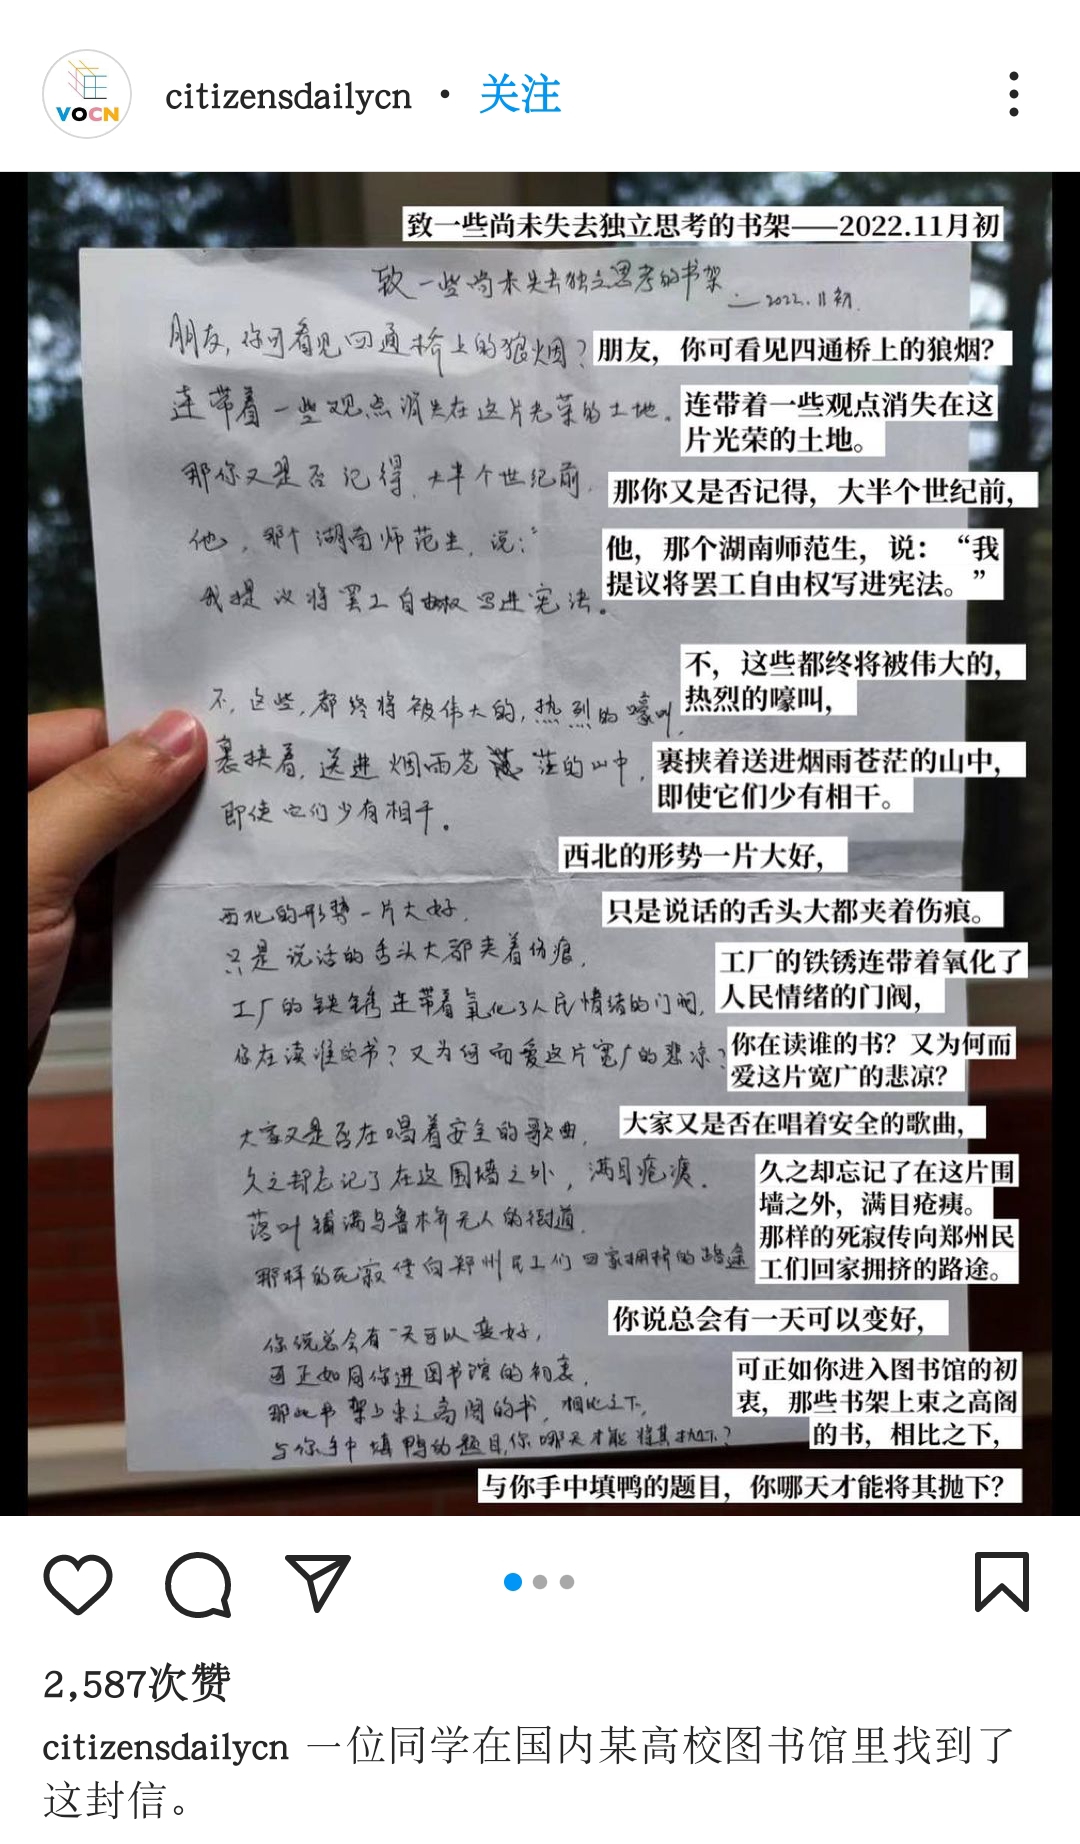 VOCN
citizensdailycn • 关注
致一些尚未失去独立思考的书架——2022.11月初
致一些尚未失去独立思考的书架
—2022.11月初.
朋友,你可看见四通桥上的狼烟?
朋友，你可看见四通桥上的狼烟?
连带着一些观点消失在这片光荣的土地.
连带着一些观点消失在这
片光荣的土地。
那你又是否记得,大半个世纪前,
那你又是否记得，大半个世纪前，
他,那个湖南师范生,说:“
他，那个湖南师范生，说：“我
提议将罢工自由权写进宪法。”
我提议将罢工自由权写进宪法。
不，这些都终将被伟大的，
热烈的嚎叫，
不,这些,都终将被伟大的,热烈的嚎叫,
裹挟着,送进烟雨苍茫的山中,
裹挟着送进烟雨苍茫的山中，
即使它们少有相干。
即使它们少有相干。
西北的形势一片大好，
西北的形势一片大好,
只是说话的舌头大都夹着伤痕。
只是说话的舌头大都夹着伤痕,
工厂的铁锈连带着氧化了
人民情绪的门阀，
工厂的铁锈连带着氧化了人民情绪的门阀,
你在读谁的书？又为何而
爱这片宽广的悲凉?
你在读谁的书?又为何而爱这片宽广的悲凉?
大家又是否在唱着安全的歌曲，
大家又是否在唱着安全的歌曲,
久之却忘记了在这片围
墙之外，满目疮痍。
久之却忘记了在这围墙之外,满目疮痍.
落叶铺满乌鲁木齐无人的街道,
那样的死寂传向郑州民
工们回家拥挤的路途。
那样的死寂传向郑州民工们回家拥挤的路途
你说总会有一天可以变好，
你说总会有一天可以变好,
可正如你进入图书馆的初
衷，那些书架上束之高阁
的书，相比之下，
可正如同你进图书馆的初衷,
那些书架上束之高阁的书,相比之下,
与你手中填鸭的题目,你哪天才能将其抛下?
与你手中填鸭的题目，你哪天才能将其抛下?
2,587次赞
citizensdailycn 一位同学在国内某高校图书馆里找到了
这封信。